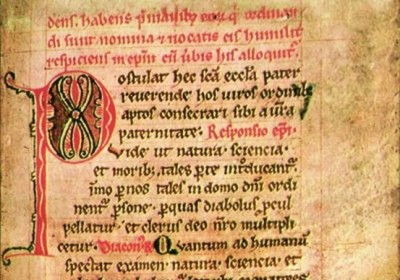 dens. habens p̄ manib; eoꝝ q̄ ordinan
di sunt nomina ⁊ uocatis eis humilit͛
respiciens in ep̄m eū ūbis his alloquit͛.
Postulat hec sc̄a eccl̄a pater
reuerende hos uiros ordinib;
aptos consecrari sibi a ur̄a
paternitate. Responsio ep̄i.
Uide ut natura. sciencia.
et morib; tales p te introducant͛.
īmo p nos tales in domo dn̄i ordi
nent͛ psone. p quas diabolus pcul
pellatur. et clerus deo nr̄o multipli
cetur. Diacon͛ Quantum ad humanū
spectat examen natura. sciencia. et